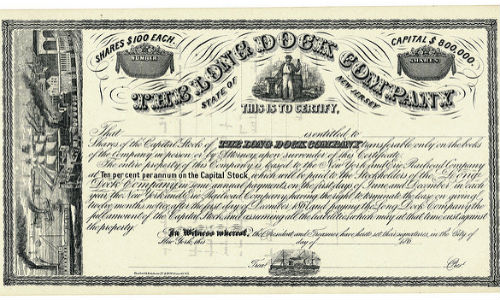 SHARES $100 EACH.
CAPITAL $800,000.
NUMBER
SHARES
THE LONG DOCK COMPANY
STATE OF NEW JERSEY
THIS IS TO CERTIFY,
That is entitled to
Shares of the Capital Stock of THE LONG DOCK COMPANY transferable only on the books
of the Company in person or by Attorney upon surrender of this Certificate.
The entire property of this Company is leased to the New York and Erie Railroad Company
at Ten per cent per annum on the Capital Stock, which will be paid to the Stockholders of the Long
Dock Company, in semi annual payments, on the first days of June and December in each
year, the New York and Erie Railroad Company having the right to terminate the lease on giving
twelve months notice after the first day of December 1861, and paying the Long Dock Company the
full amount of the Capital Stock and assuming all the liabilities which may at that time exist against
the property.
In Witness whereof, the President and Treasurer have hereto set their signatures, in the City of
New York, this day of 18
Treas. Pres.